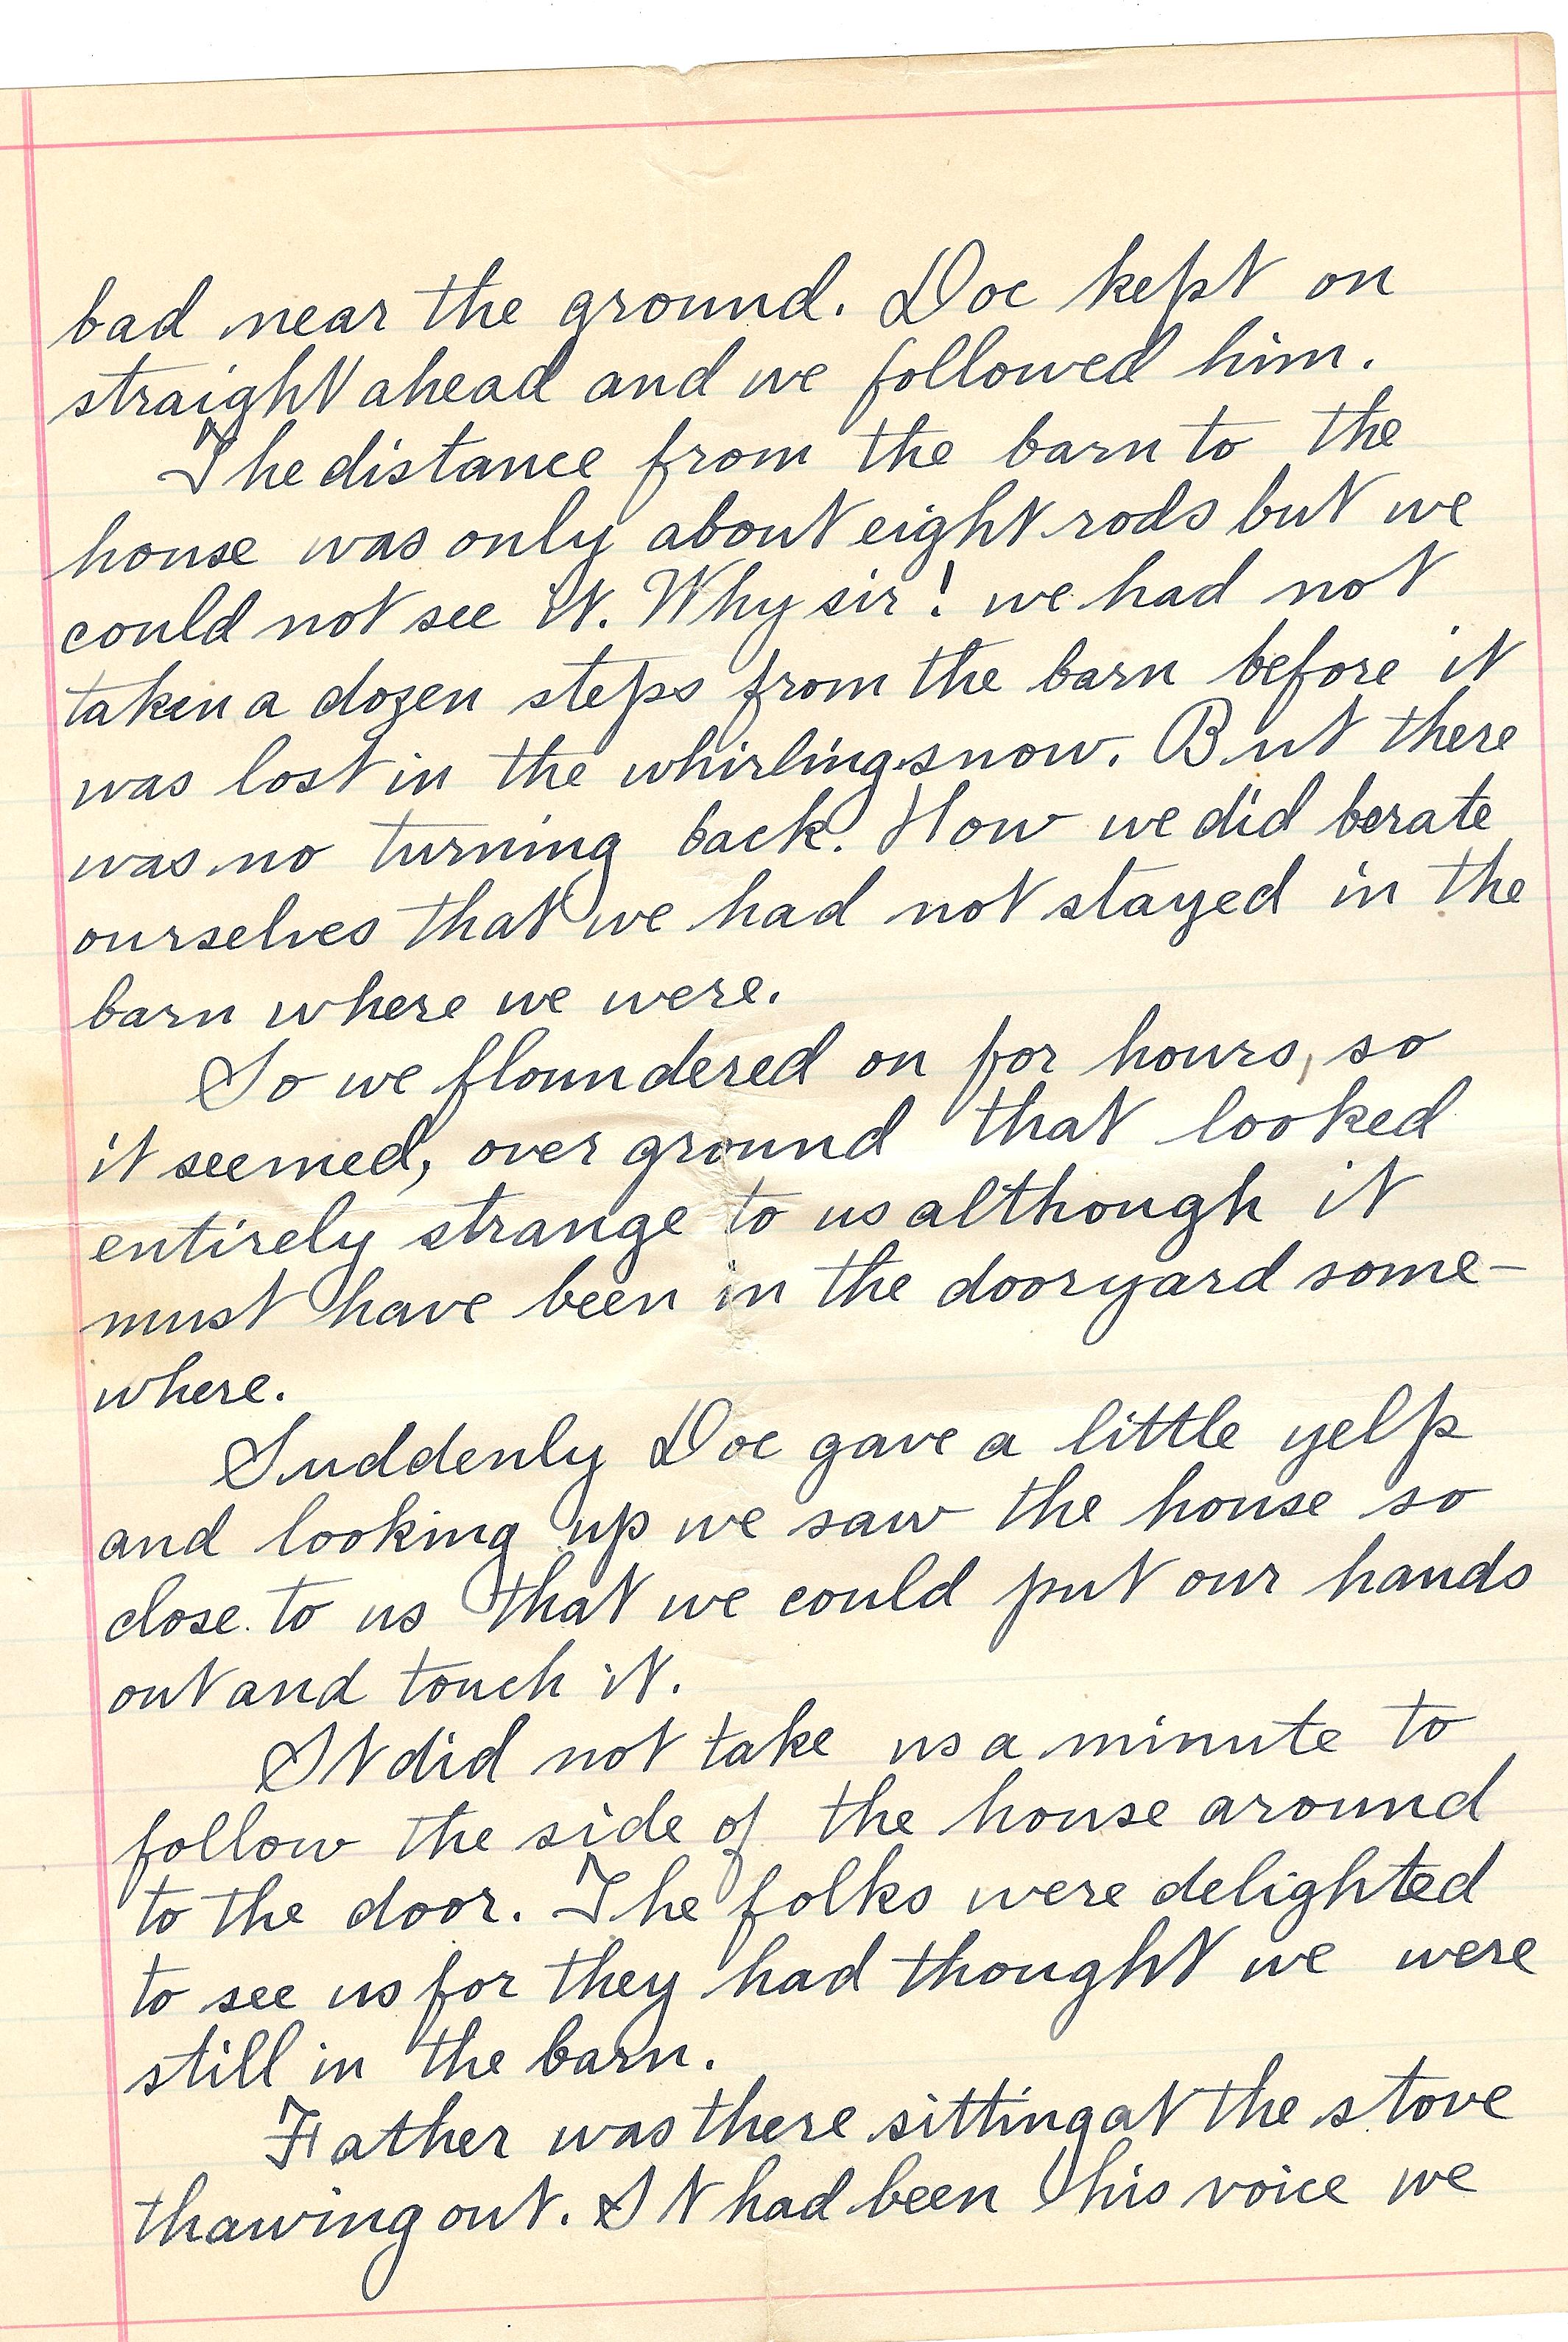 bad near the ground. Doc kept on
straight ahead and we followed him.
The distance from the barn to the
house was only about eight rods but we
could not see it. Why sir! we had not
taken a dozen steps from the barn before it
was lost in the whirling snow. But there
was no turning back. How we did berate
ourselves that we had not stayed in the
barn where we were.
So we floundered on for hours, so
it seemed, over ground that looked
entirely strange to us although it
must have been in the dooryard some-
where.
Suddenly Doc gave a little yelp
and looking up we saw the house so
close to us that we could put our hands
out and touch it.
It did not take us a minute to
follow the side of the house around
to the door. The folks were delighted
to see us for they had thought we were
still in the barn.
Father was there sitting at the stove
thawing out. It had been his voice we